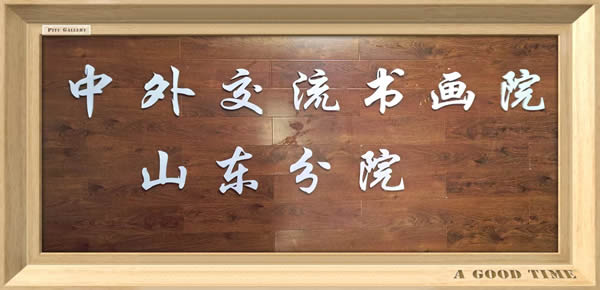 PITU GALLERY
中外交流书画院
山东分院
A GOOD TIME